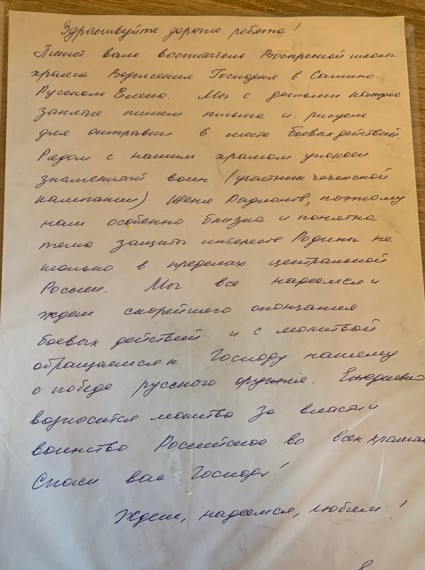 Здраствуйте дорогие ребята!
Пишет вам воспитатель Воскресной школы
храма Вознесения Господня в Сатино-
Русском Елена. Мы с детьми каждое
занятие пишем письма и рисуем
для отправки в места боевых действий.
Рядом с нашим храмом упокоен
знаменитый воин (участник чеченской
кампании) Женя Родионов, поэтому
нам особенно близка и понятна
тема защиты интересов Родины не
только в пределах центральной
России. Мы все надеемся и
ждем скорейшего окончания
боевых действий и с молитвой
обращаемся к Господу нашему
о победе русского оружия. Ежедневно
возносится молитва за власти и
воинство Российское во всех храмах
Спаси вас Господь!
Ждем, надеемся, любим!